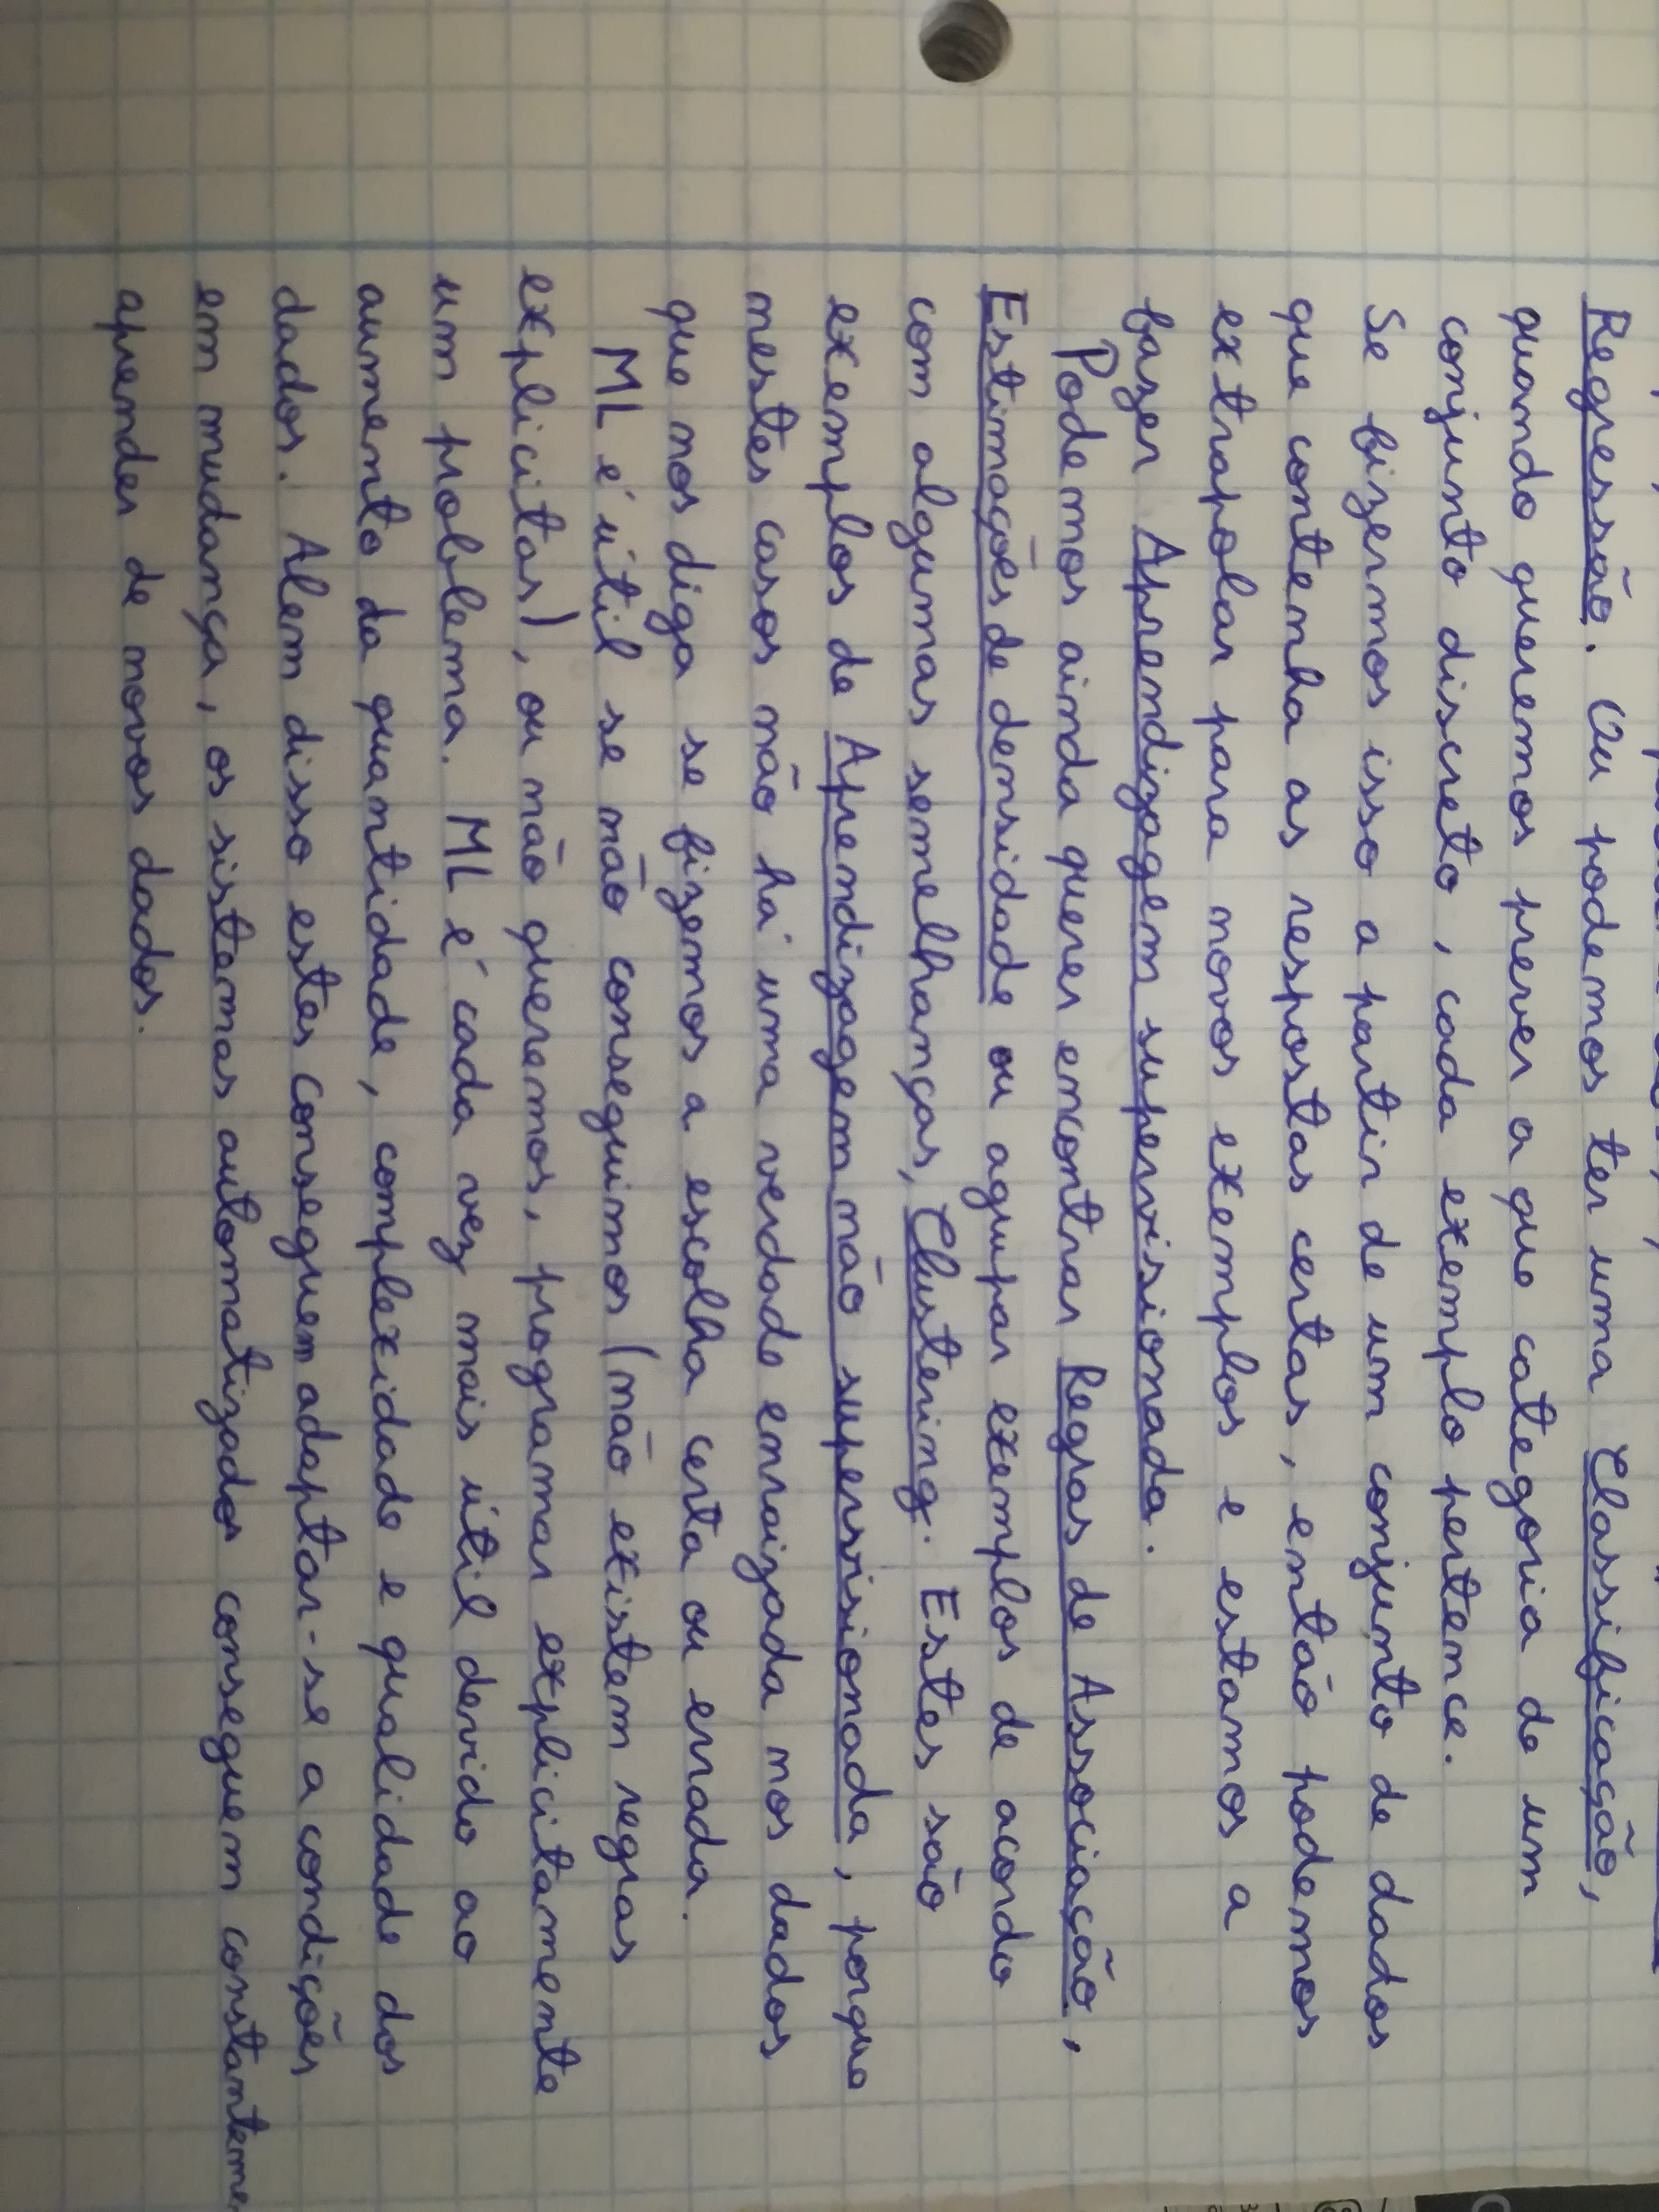 Regressão. Ou podemos ter uma Classificação,
quando queremos prever a que categoria de um
conjunto discreto, cada exemplo pertence.
Se fizermos isso a partir de um conjunto de dados
que contenha as respostas certas, então podemos
extrapolar para novos exemplos e estamos a
fazer Aprendizagem supervisionada.
Podemos ainda querer encontrar Regras de Associação,
Estimações de densidade ou agrupar exemplos de acordo
com algumas semelhanças, Clustering. Estes são
exemplos de Aprendizagem não supervisionada, porque
nestes casos não há uma verdade enraizada nos dados
que nos diga se fizemos a escolha certa ou errada.
ML é útil se não conseguimos (não existem regras
explicitas), ou não queremos, programar explicitamente
um problema. ML é cada vez mais útil devido ao
aumento da quantidade, complexidade e qualidade dos
dados. Alem disso estes conseguem adaptar-se a condições
em mudança, os sistemas automatizados conseguem constanteme
aprender de novos dados.